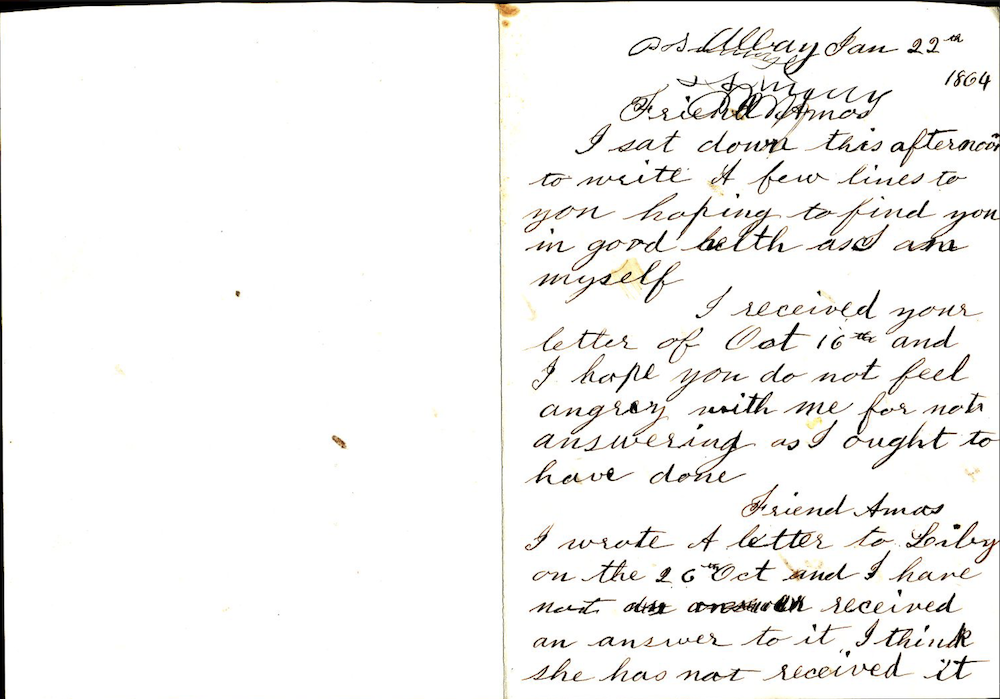 Albay Jan 22th
1864
Friend Amos
I sat down this afternoon
to write A few lines to
you hoping to find you
in good helth as I am
myself
I received your
letter of Oct 16th and
I hope you do not feel
angrey with me for not
answering as I ought to
have done
Friend Amos
I wrote A letter to Liby
on the 26th Oct and I have
not received
an answer to it I think
she has not received it